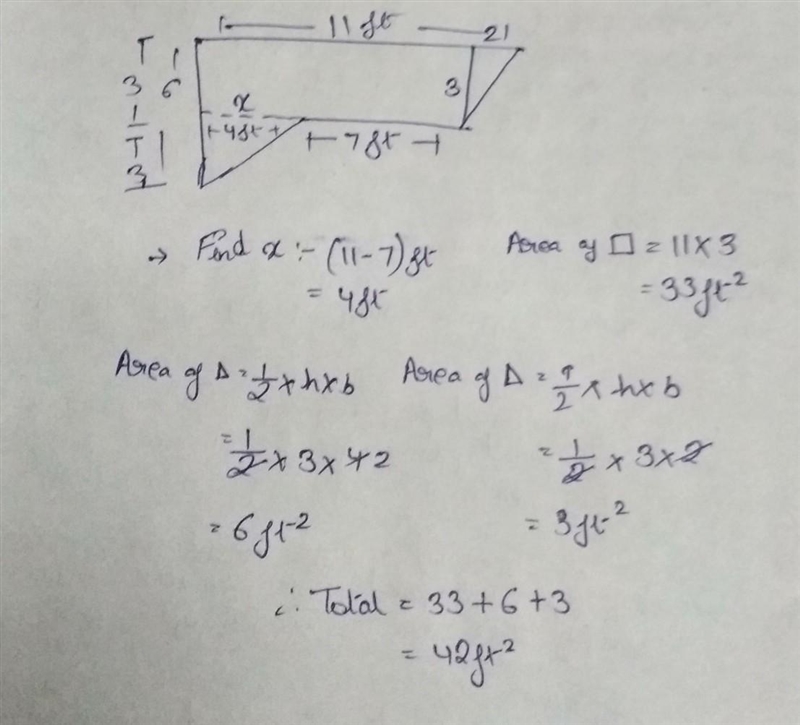 11 ft 2
T 1
3 6
1
T
3
x
4ft
7 ft
3
→ Find x :- (11-7) ft
= 4ft
Area of □ = 11 x 3
= 33 ft²
Area of Δ = 1/2 x h x b
= 1/2 x 3 x 4 2
= 6 ft²
Area of Δ = 1/2 x h x b
= 1/2 x 3 x 2
= 3 ft²
∴ Total = 33 + 6 + 3
= 42 ft²